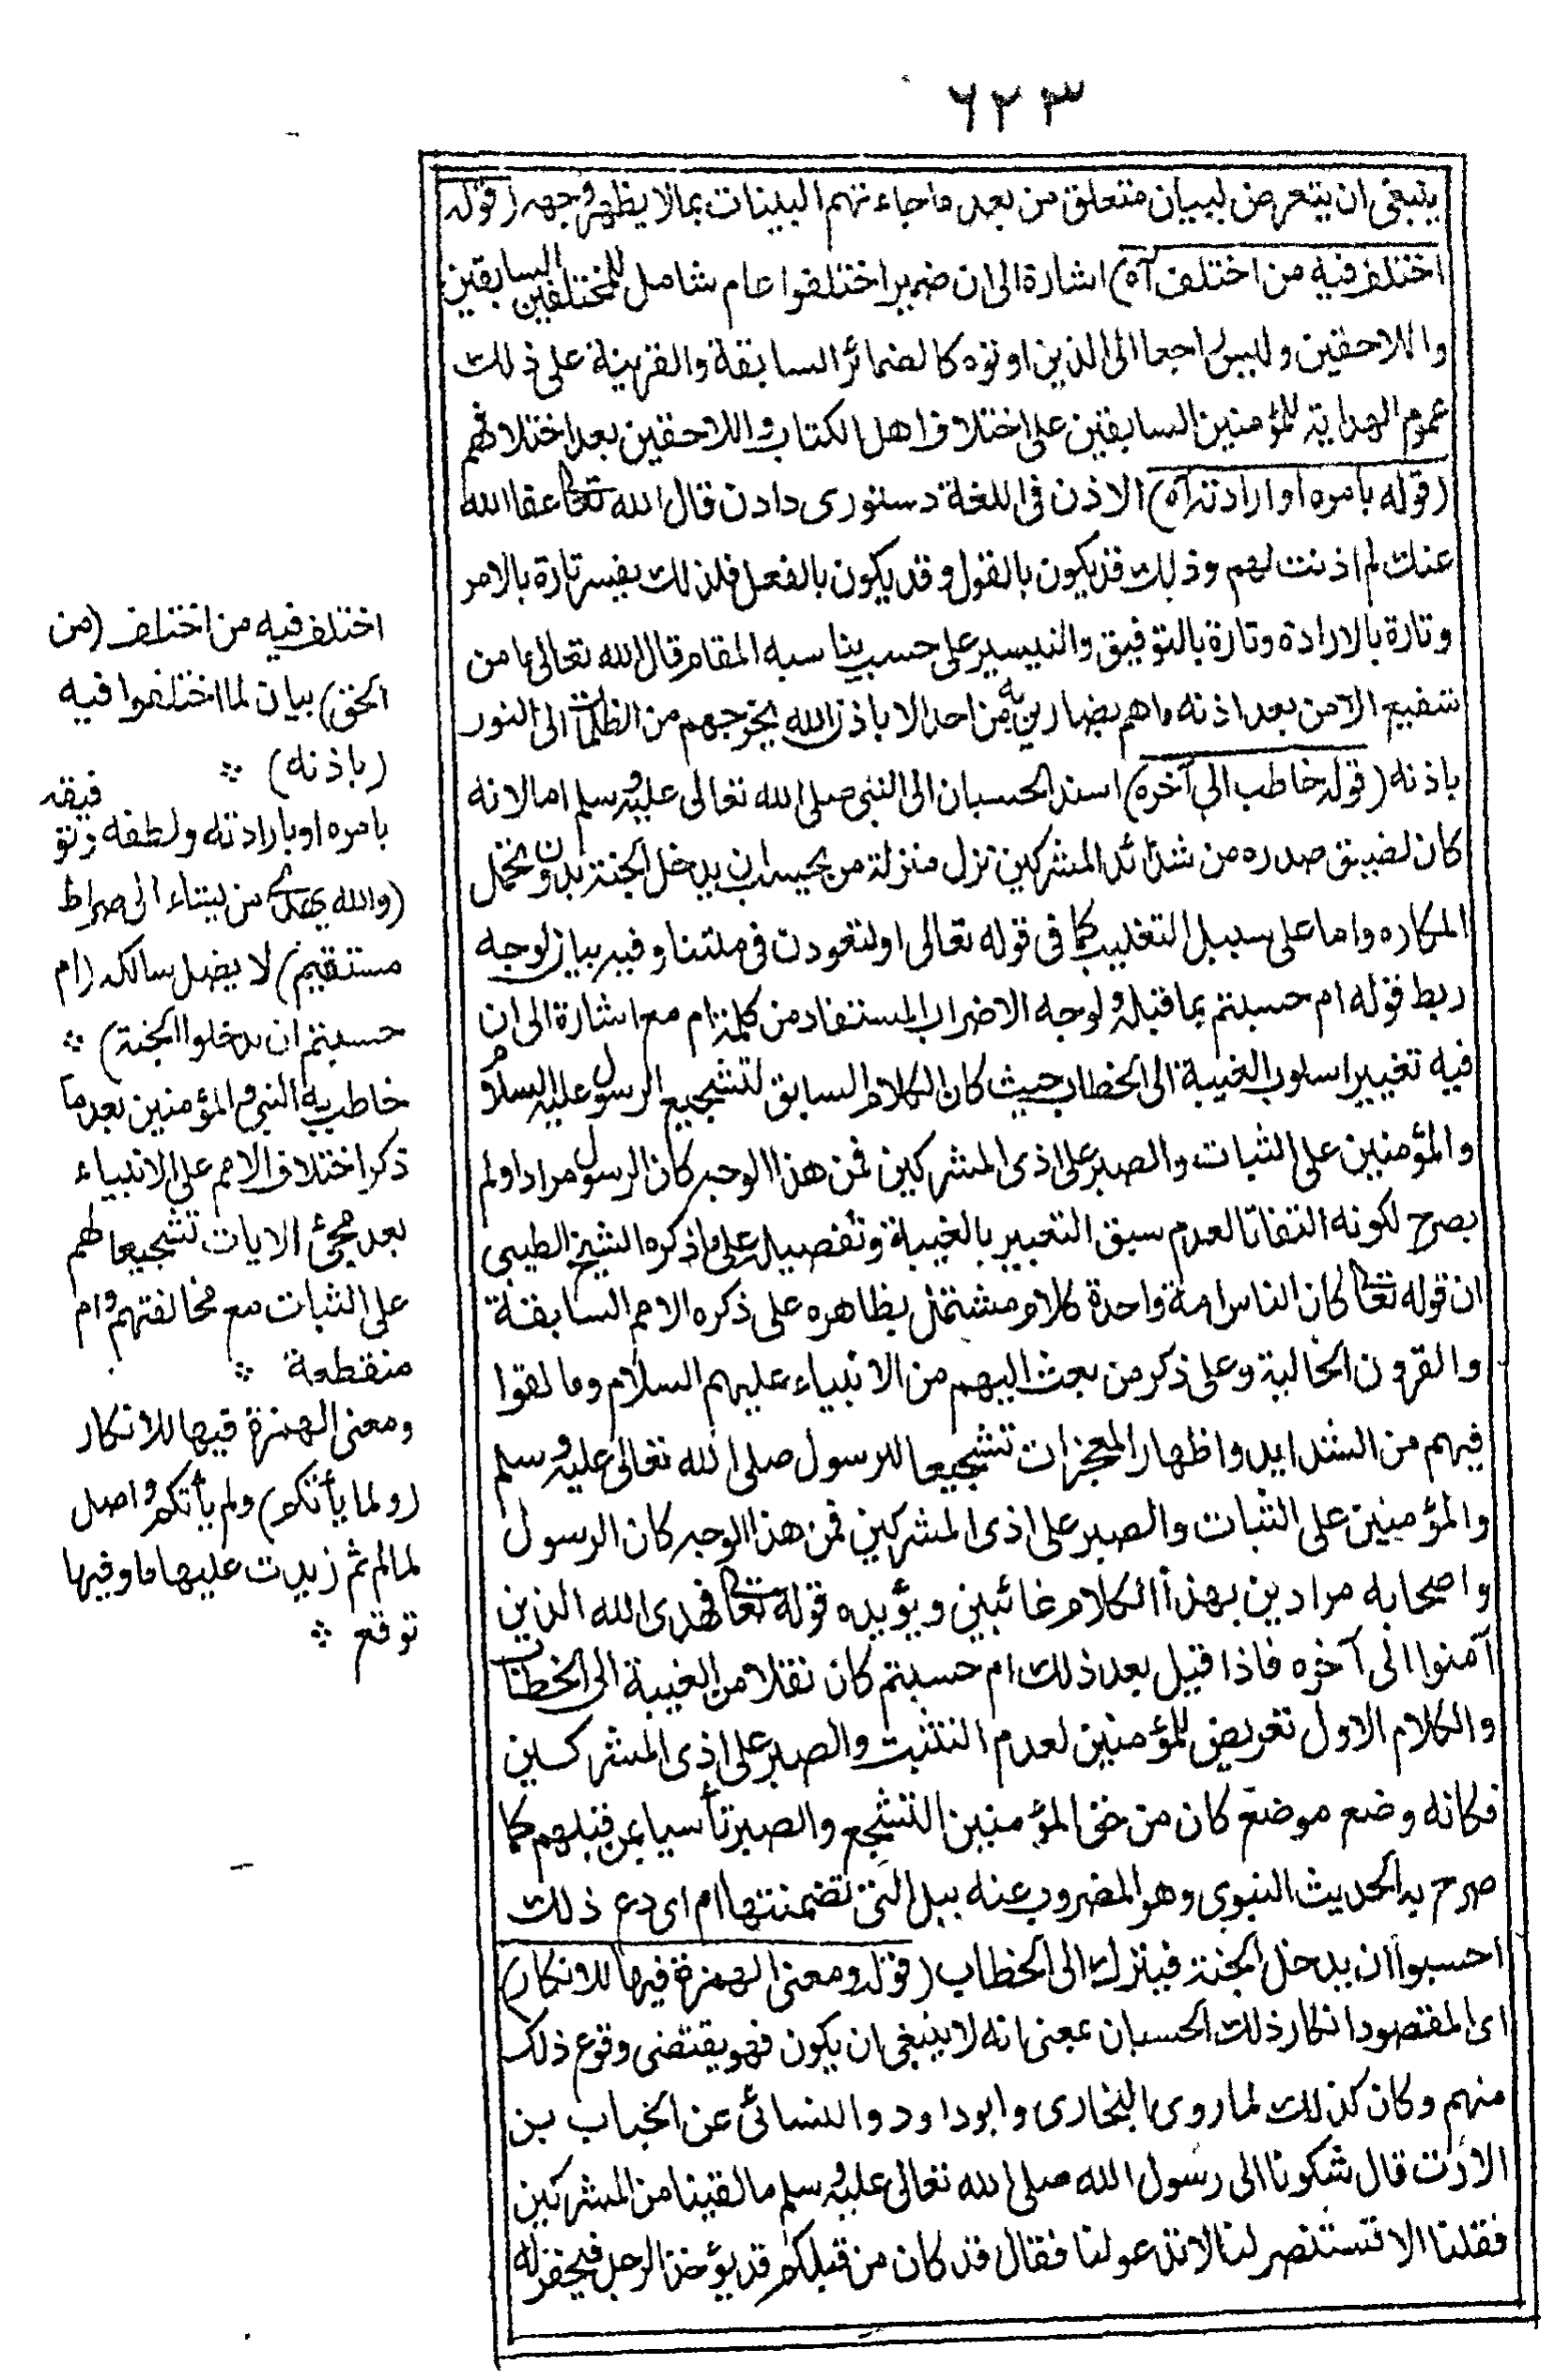 ٦٢٣
ينبغى ان يتعرض لبيان متعلق من بعد ما جاءتهم البينات بما لا يظهر وجهه (قوله
اختلف فيه من اختلف آه) اشارة الى ان ضمير اختلفوا عام شامل للمختلفين السابقين
واللاحقين وليس راجعا الى الذين اوتوه كالضمائر السابقة والقرينة على ذلك
عموم الهداية للمؤمنين السابقين على اختلاف اهل الكتاب واللاحقين بعد اختلافهم
(قوله بامره او ارادته آه) الاذن فى اللغة دستورى دادن قال الله تعا عفا الله
عنك لم اذنت لهم وذلك قد يكون بالقول وقد يكون بالفعل فلذلك يفسر تارة بالامر
وتارة بالارادة وتارة بالتوفيق والتيسير على حسب يناسبه المقام قال الله تعالى ما من
شفيع الا من بعد اذنه ما هم بضارين به من احد الا باذن الله يخرجهم من الظلمات الى النور
باذنه (قوله خاطب الى آخره) اسند الحسبان الى النبى صلى الله تعالى عليه وسلم اما لانه
كان لضيق صدره من شدائد المشركين نزل منزلة من يحسب ان يدخل الجنة بدون تحمل
المكاره واما على سبيل التغليب كما فى قوله تعالى او لتعودن فى ملتنا وفيه بيان لوجه
ربط قوله ام حسبتم بما قبله ولوجه الاضراب المستفاد من كلمة ام مع اشارة الى ان
فيه تغيير اسلوب الغيبة الى الخطاب حيث كان الكلام السابق لتشجيع الرسول عليه السلام
والمؤمنين على الثبات والصبر على اذى المشركين فمن هذا الوجه كان الرسول مرادا ولم
يصرح لكونه التفاتا لعدم سبق التعبير بالغيبة وتفصيله على ما ذكره الشيخ الطيبى
ان قوله تعا كان الناس امة واحدة كلام مشتمل بظاهره على ذكره الامم السابقة
والقرون الخالية وعلى ذكر من بعث اليهم من الانبياء عليهم السلام وما لقوا
فيهم من الشدايد واظهار المعجزات تشجيعا للرسول صلى الله تعالى عليه وسلم
والمؤمنين على الثبات والصبر على اذى المشركين فمن هذا الوجه كان الرسول
واصحابه مرادين بهذا الكلام غائبين ويؤيده قوله تعا فهدى الله الذين
آمنوا الى آخره فاذا قيل بعد ذلك ام حسبتم كان نقلا من الغيبة الى الخطاب
والكلام الاول تعريض للمؤمنين لعدم التثبت والصبر على اذى المشركين
فكانه وضع موضع كان من حق المؤمنين التشجع والصبر تأسيا بمن قبلهم كما
صرح به الحديث النبوى وهو المضروب عنه ببل التى تضمنتها ام اى دع ذلك
احسبوا ان يدخل الجنة فيترك الى الخطاب (قوله ومعنى الهمزة فيها للانكار)
اى المقصود انكار ذلك الحسبان بمعنى انه لا ينبغى ان يكون فهو يقتضى وقوع ذلك
منهم وكان كذلك لما روى البخارى وابو داود والنسائى عن الخباب بن
الارت قال شكونا الى رسول الله صلى الله تعالى عليه وسلم ما لقينا من المشركين
فقلنا الا تستنصر لنا الا تدعو لنا فقال قد كان من قبلكم قد يؤخذ الرجل فيحفر له
اختلف فيه من اختلف (من
الحق) بيان لما اختلفوا فيه
(باذنه)
بامره او بارادته ولطفه وتو
فيقه
(والله يهدى من يشاء الى صراط
مستقيم) لا يضل سالكه (ام
حسبتم ان تدخلوا الجنة)
خاطب به النبى والمؤمنين بعد ما
ذكر اختلاف الامم على الانبياء
بعد مجئ الايات تشجيعا لهم
على الثبات مع مخالفتهم وام
منقطعة
ومعنى الهمزة فيها للانكار
(ولما يأتكم) ولم يأتكم واصل
لما لم ثم زيدت عليها ما وفيها
توقع